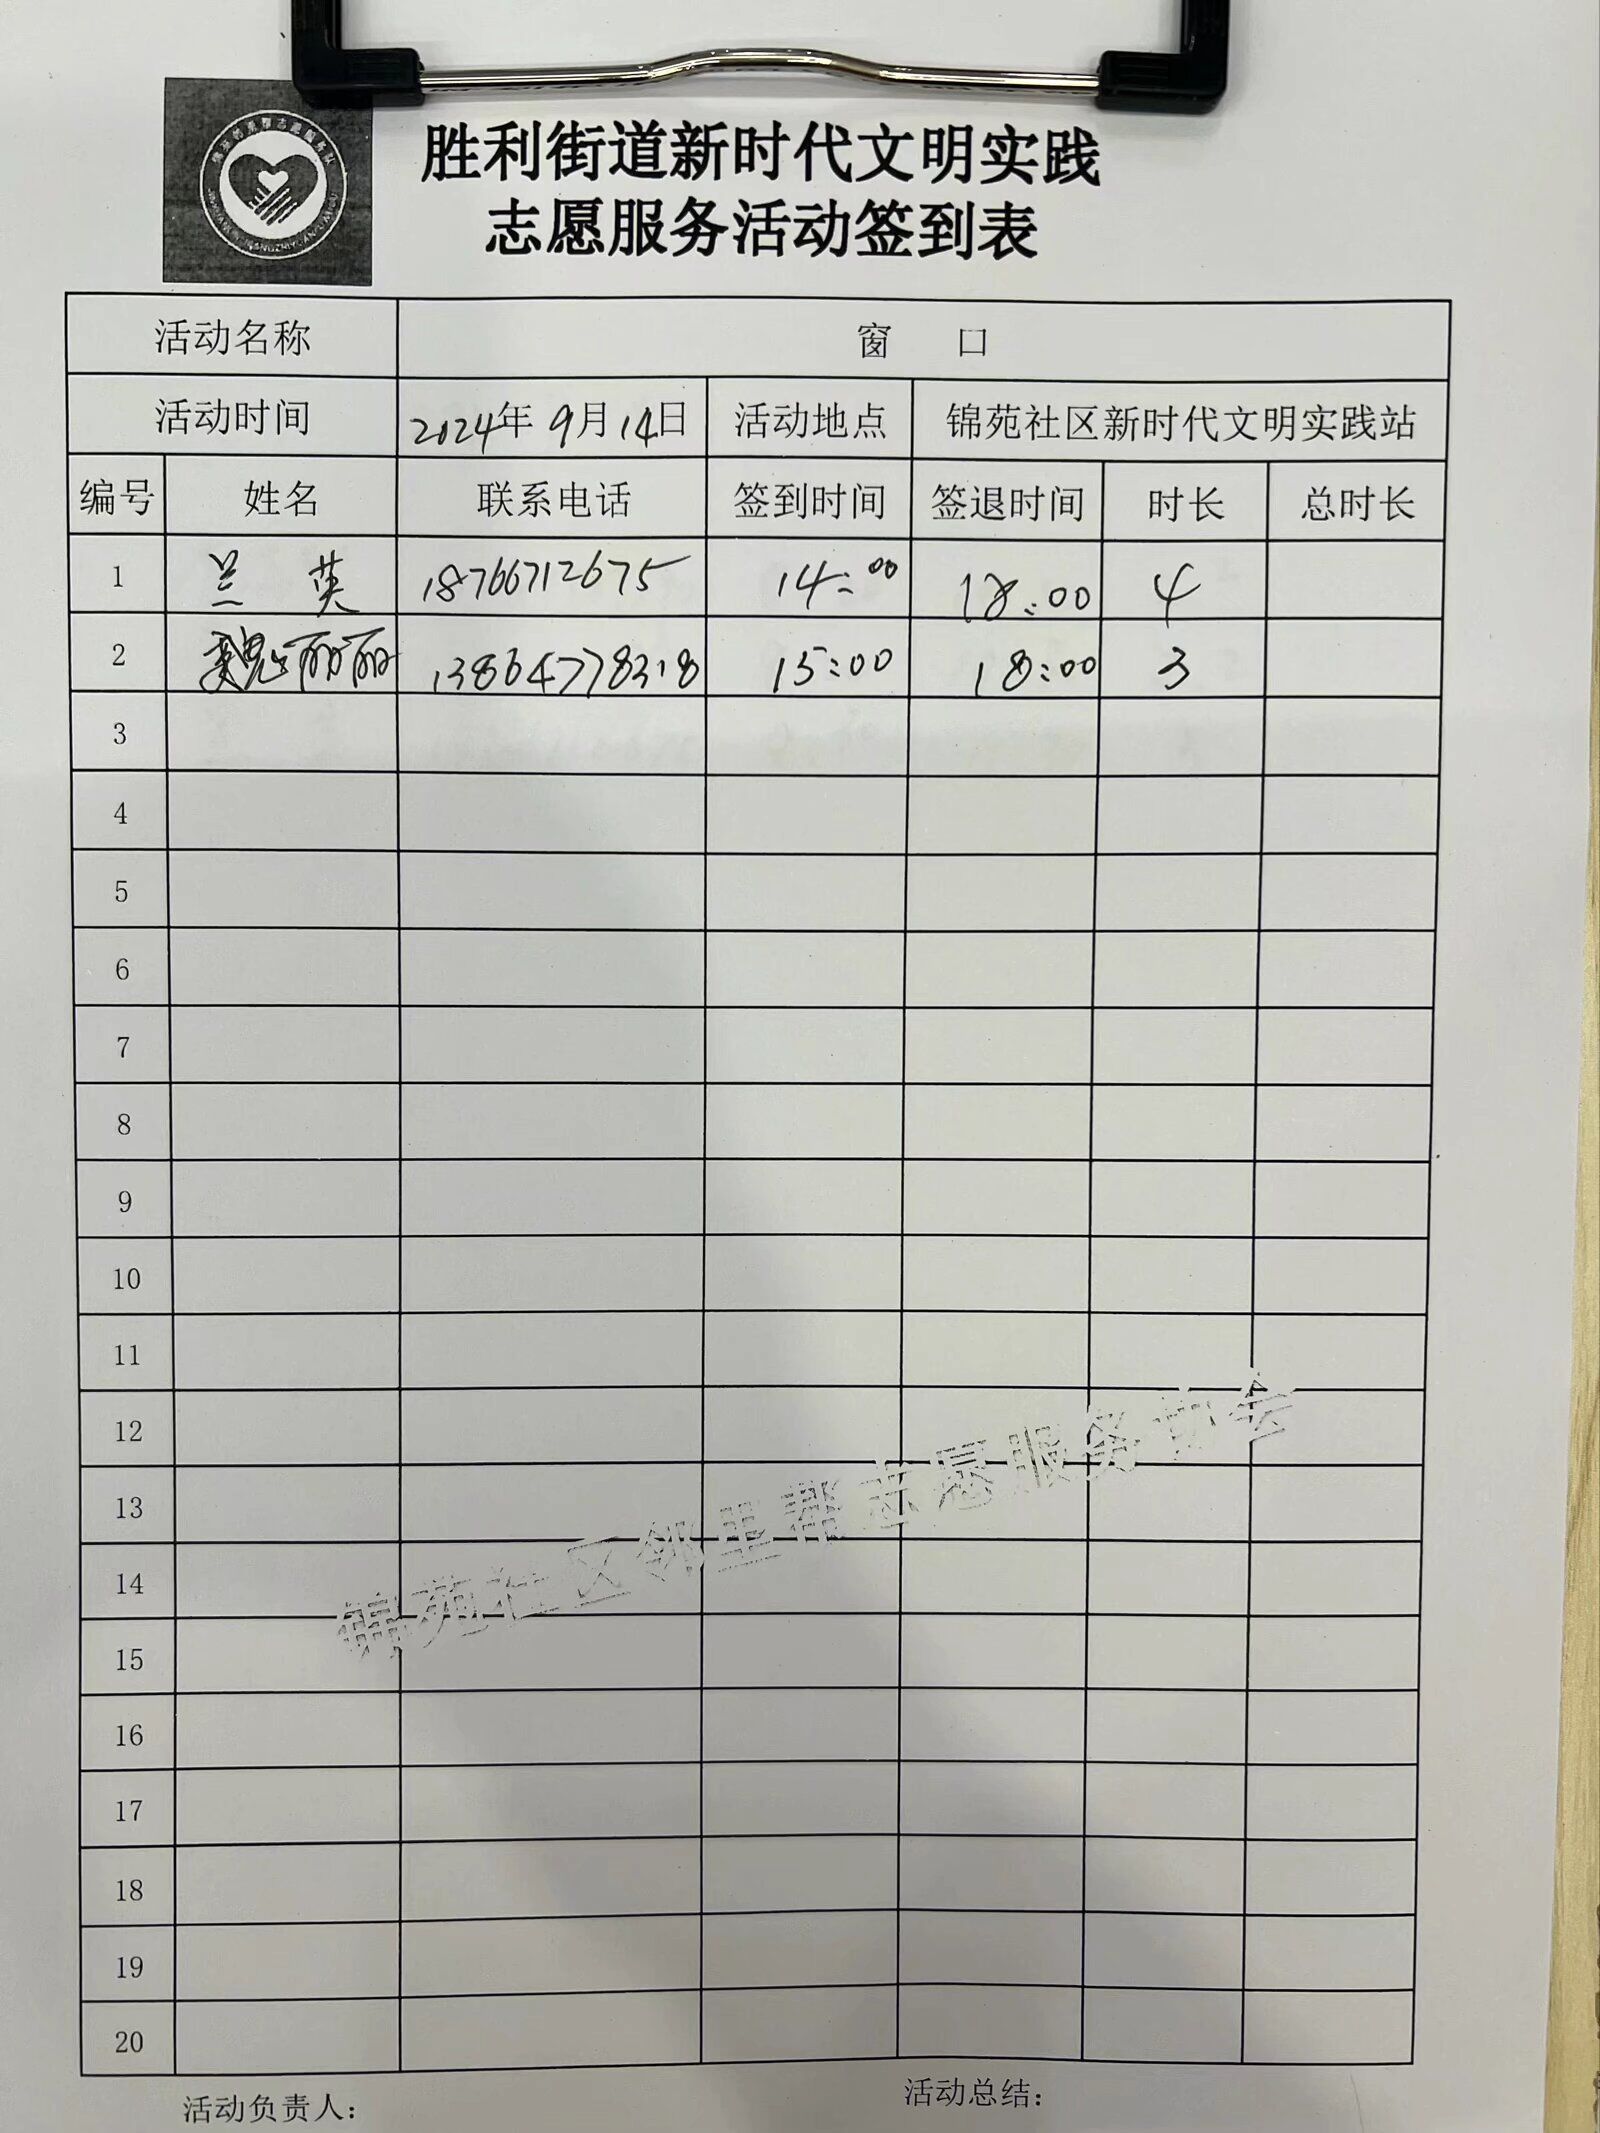 胜利街道新时代文明实践
志愿服务活动签到表
活动名称 窗 口
活动时间 2024年 9月14日 活动地点 锦苑社区新时代文明实践站
编号 姓名 联系电话 签到时间 签退时间 时长 总时长
1 兰 英 18766712675 14:00 18:00 4
2 魏丽丽 13864778318 15:00 18:00 3
3
4
5
6
7
8
9
10
11
12
13
14
15
16
17
18
19
20
锦苑社区邻里帮志愿服务协会
活动负责人: 活动总结: